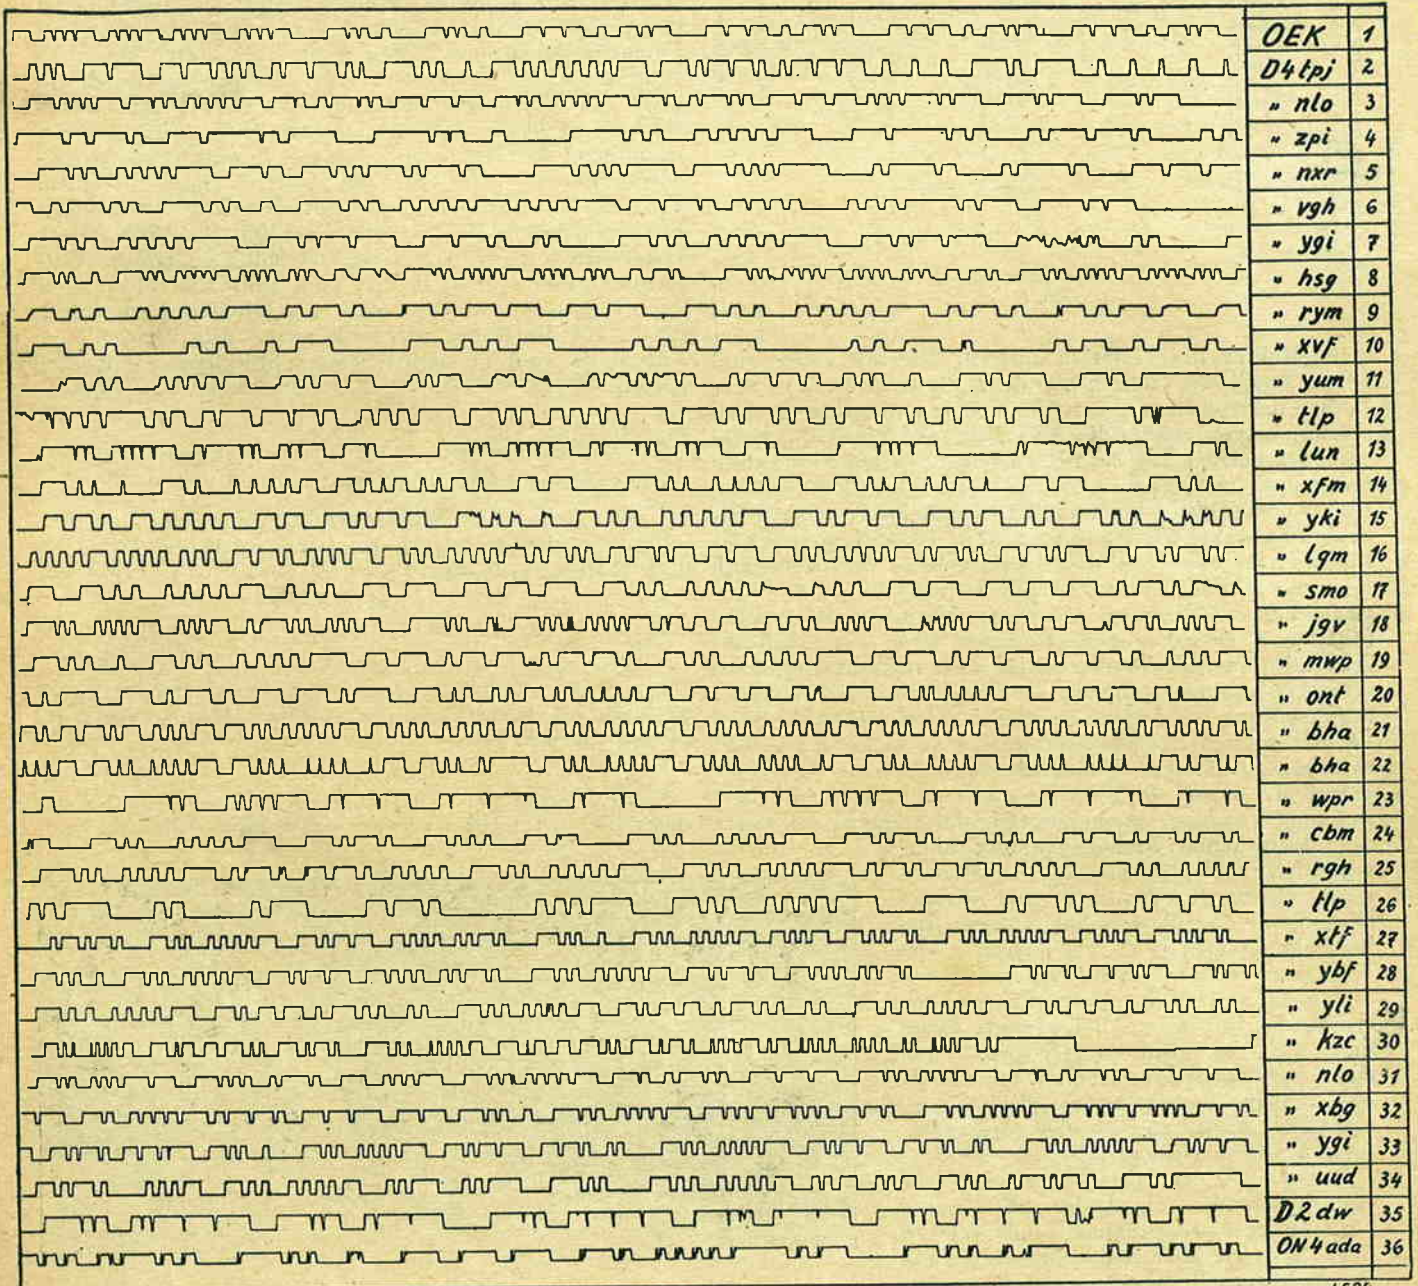 OEK 1
D4tpj 2
" nlo 3
" zpi 4
" nxr 5
" vgh 6
" ygi 7
" hsg 8
" rym 9
" xvf 10
" yum 11
" tlp 12
" lun 13
" xfm 14
" yki 15
" lqm 16
" smo 17
" jgv 18
" mwp 19
" ont 20
" bha 21
" bha 22
" wpr 23
" cbm 24
" rgh 25
" tlp 26
" xtf 27
" ybf 28
" yli 29
" kzc 30
" nlo 31
" xbg 32
" ygi 33
" uud 34
D2dw 35
ON4ada 36